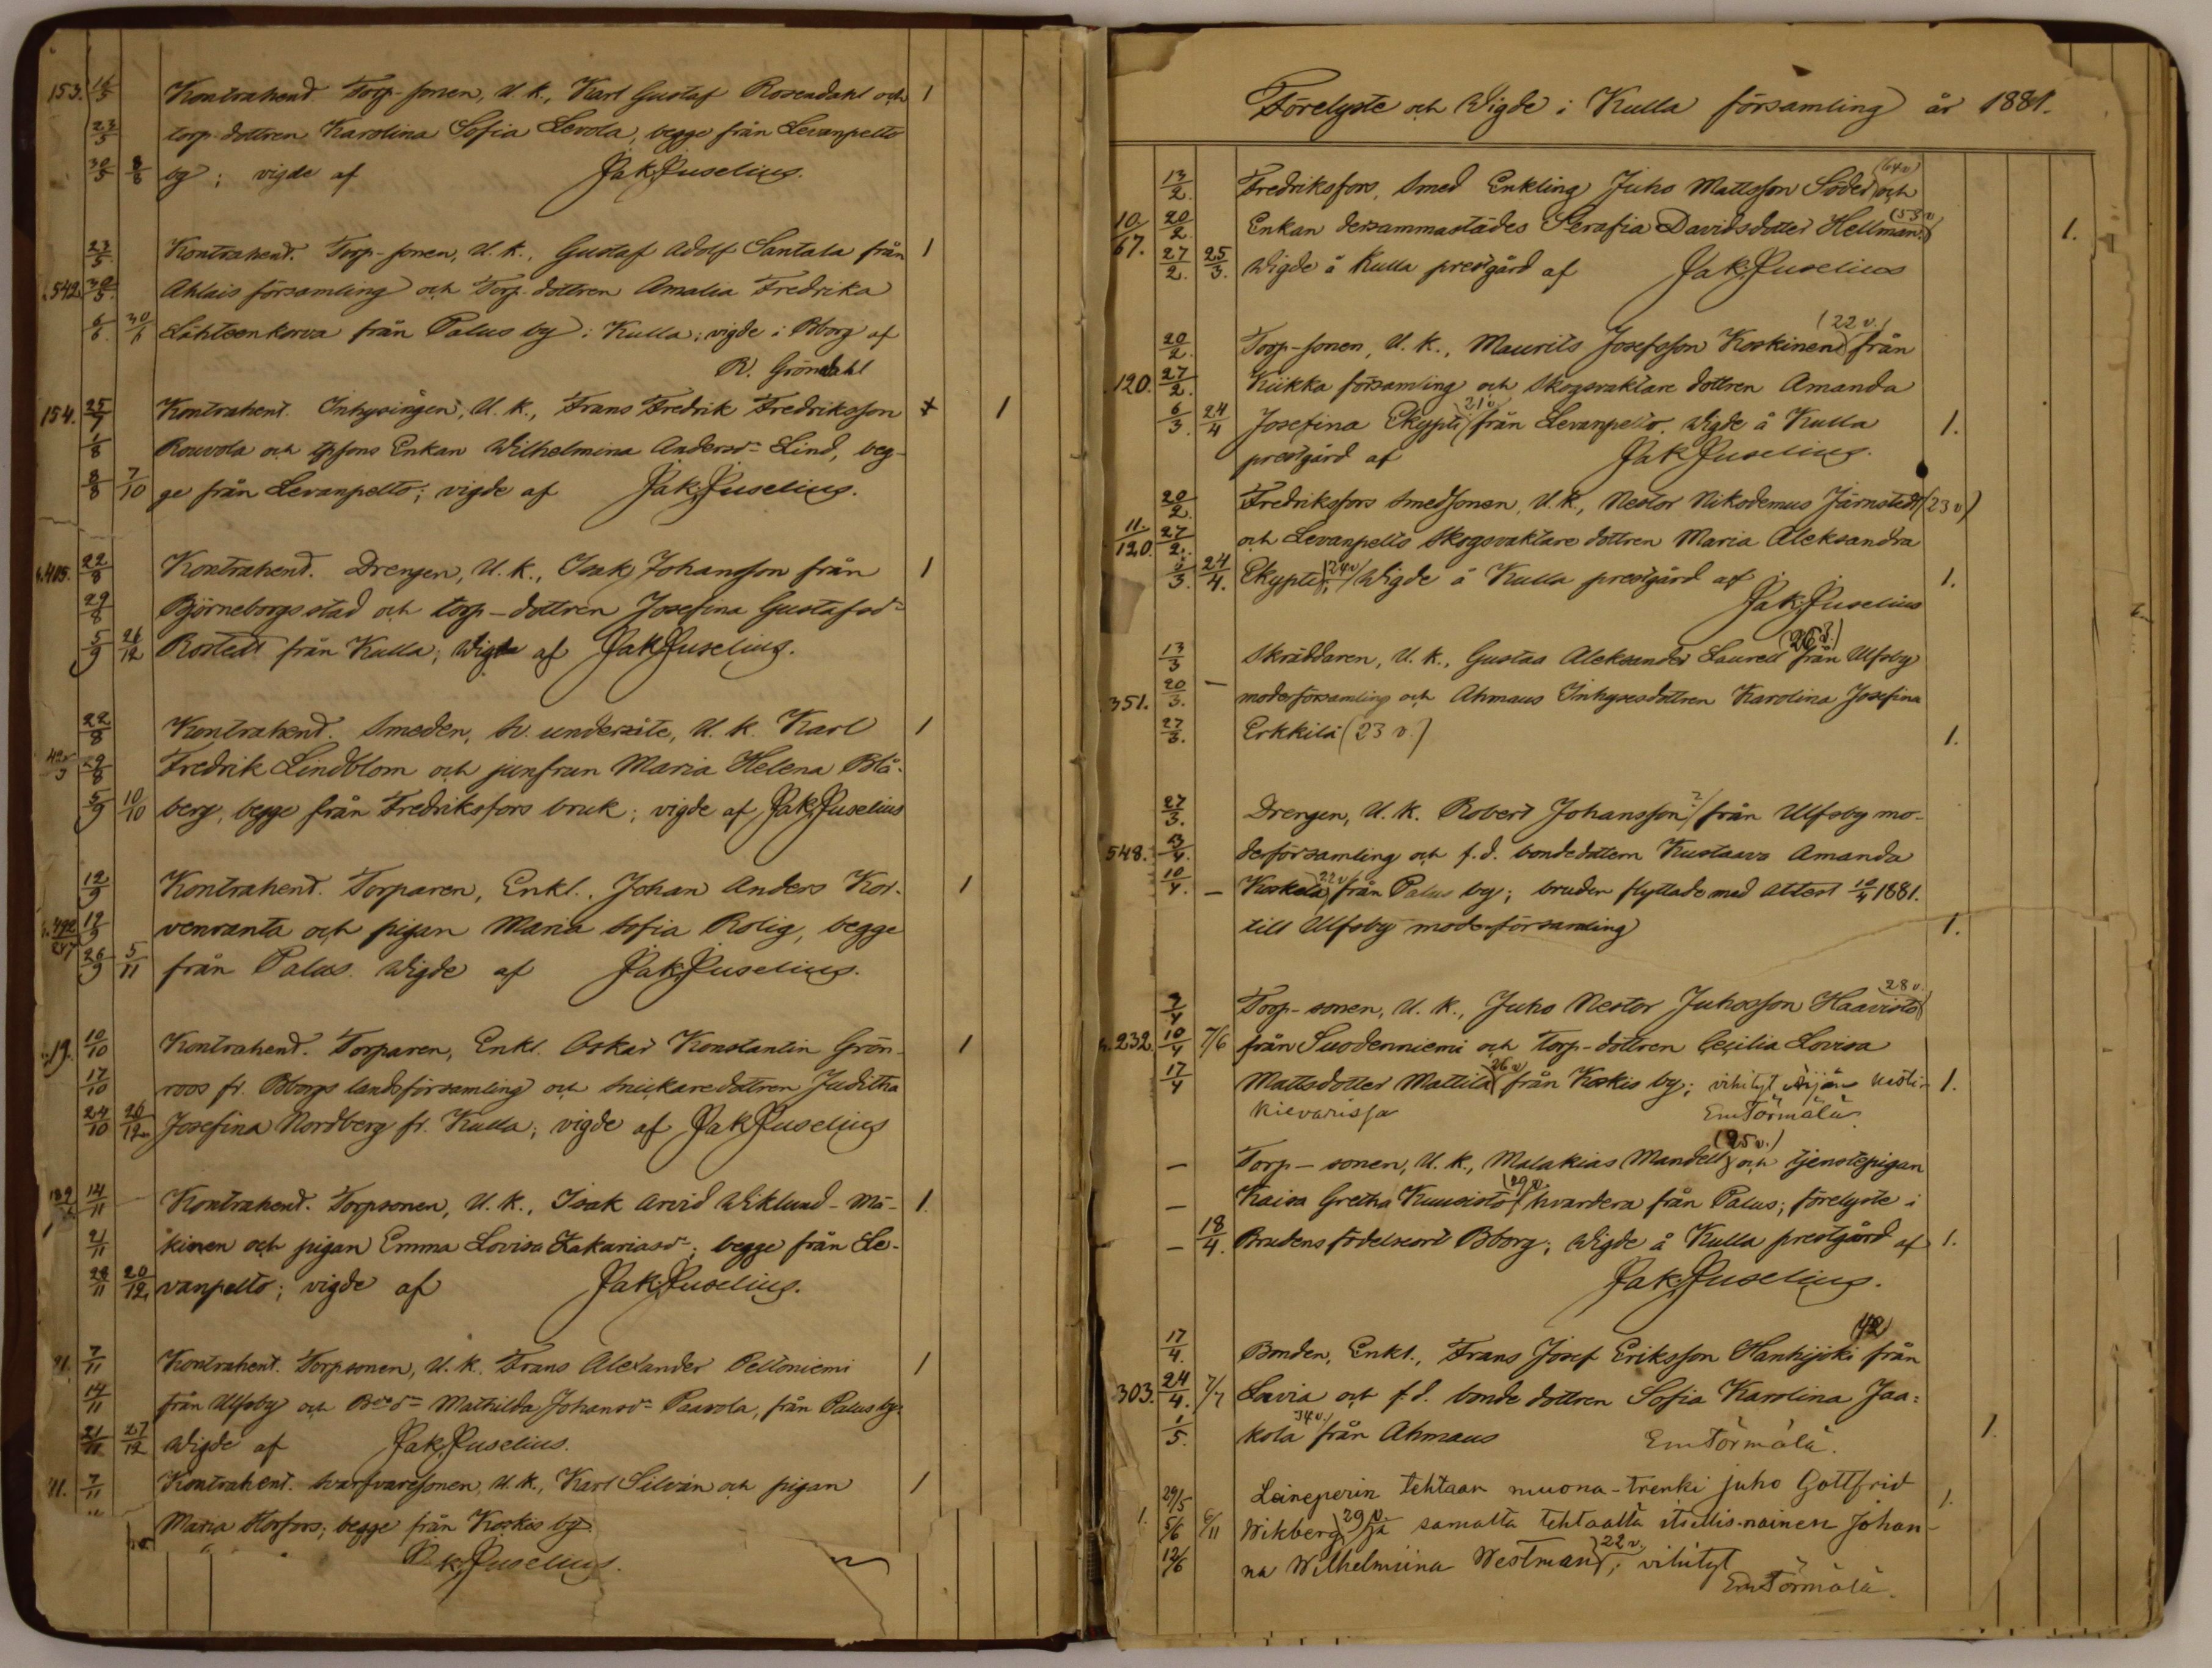 153. 16/5 Kontrahent. Torp-sonen, U. k., Karl Gustaf Rosendahl och 1
23/5 torp. dottren Karolina Sofia Levola, begge från Levanpelto
30/5 8/8 by; vigde af Jak. Juselius.
23/5. Kontrahent. Torp-sonen, U. k., Gustaf Adolf Santala från 1
542 30/5. Ahlais församling och Torp. dottren Amalia Fredrika
6/6. Lähteenkorva från Palus by i Kulla; vigde i Bborg af
R. Gröndahl
154. 25/7 Kontrahent. Inhysingen, U. k., Frans Fredrik Fredriksson 1
1/8 Rouvola och Enkan Wilhelmina Andersdr Lind, beg-
8/8 7/10 ge från Levanpelto; vigde af Jak. Juselius.
405. 22/8 Kontrahent. Drengen, U. k., Isak Johansson från 1
29/8 Björneborgs stad och torp-dottren Josefina Gustafsdr
5/9 26/12 Rostedt från Kulla; Wigde af Jak. Juselius.
22/8 Kontrahent. Smeden, Sv. undersåte, U. k. Karl 1
29/8 Fredrik Lindblom och jungfrun Maria Helena Blå-
5/9 10/10 berg, begge från Fredriksfors bruk; vigde af Jak. Juselius
12/9 Kontrahent. Torparen, Enkl., Johan Anders Kor- 1
19/9 venranta och pigan Maria Sofia Rolig, begge
26/9 5/11 från Palus. Wigde af Jak. Juselius.
19. 10/10 Kontrahent. Torparen, Enkl. Oskar Konstantin Grön- 1
17/10 roos fr. Bborgs landsförsamling och Snickaredottren Juditha
24/10 26/12 Josefina Nordberg fr. Kulla; vigde af Jak. Juselius
14/11 Kontrahent. Torpsonen, U. k., Isak Arvid Wiklund-Mä- 1.
21/11 kinen och pigan Emma Lovisa Zakariasdr; begge från Le-
28/11 20/12 vanpelto; vigde af Jak. Juselius.
7/11 Kontrahent. Torpsonen, U. k. Frans Alexander Peltoniemi 1
14/11 från Ulfsby och Mathilda Johansdr Paavola, från Palus by.
21/11 27/12 Wigde af Jak. Juselius.
7/11 Kontrahent. Svarfvaresonen, U. k., Karl Silván och pigan 1
Maria Horfors; begge från Koskis by.
Juselius.
Förelyste och Wigde i Kulla församling år 1881.
13/2. Fredriksfors, Smed Enkling Juho Mattsson Söder (64 v) och
10/67. 20/2. Enkan dersammastädes Serafia Davidsdotter Hellman (53 v) 1.
27/2. 25/3. Wigde å Kulla prestgård af Jak. Juselius
20/2. Torp-sonen, U. k., Maurits Josefsson Koskinen (22 v.) från
120. 27/2. Kiikka församling och Skogsvaktare dottren Amanda
6/3. 24/4 Josefina Ekypti (21 v) från Levanpelto. Wigde å Kulla 1.
prestgård af Jak. Juselius.
20/2. Fredriksfors Smedsonen, U. k., Nestor Nikodemus Järnstedt (23 v)
11./120. 27/2. och Levanpelto Skogsvaktare dottren Maria Aleksandra
6/3. 24/4. Ekypti (24 v); Wigde å Kulla prestgård af 1.
Jak. Juselius
13/3 Skräddaren, U. k., Gustaa Aleksander Laurell (26 v.) från Ulfsby
351. 20/3. — moderförsamling och Ahmaus Inhysesdottren Karolina Josefina
27/3. Erkkilä (23 v.) 1.
27/3. Drengen, U. k. Robert Johansson ? från Ulfsby mo-
548. 3/4. derförsamling och f. d. bondedottern Kustaava Amanda
10/4. — Koskela (22 v) från Palus by; bruden flyttade med attest 10/4 1881.
till Ulfsby moderförsamling 1.
3/4 Torp-sonen, U. k., Juho Nestor Juhosson Haavisto (28 v.)
232. 10/4 7/6 från Suodenniemi och Torp-dottren Cecilia Lovisa
17/4 Mattsdotter Mattila (26 v) från Koskis by; vihityt kesti- 1.
kievarissa Em Törmälä
— Torp-sonen, U. k., Malakias Mandell (25 v.) och tjenstepigan
— Kaisa Gretha Kuusisto (29 v.) hvardera från Palus; förelyste i
— 18/4. Brudens födelseort Bborg; Wigde å Kulla prestgård af 1.
Jak. Juselius.
17/4. Bonden, Enkl., Frans Josef Eriksson Hanhijoki (42) från
303. 24/4. 7/7 Lavia och f. d. bonde dottren Sofia Karolina Jaa-
1/5. kola 34 v. från Ahmaus Em Törmälä. 1.
29/5 Leineperin tehtaan muona-trenki Juho Gottfrid 1.
5/6 6/11 Wikberg (29 v.) ja samalta tehtaalta itsellis-nainen Johan-
12/6 na Wilhelmiina Westman (22 v.); vihityt
Em Törmälä.